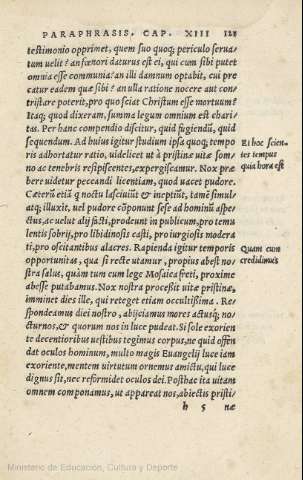 PARAPHRASIS. CAP. XIII 121
testimonio opprimet, quem suo quoq; periculo serua-
tum uelit? an fœnori daturus est ei, qui cum sibi putet
omnia esse communia? an illi damnum optabit, cui pre
catur eadem quæ sibi? an ulla ratione nocere aut con-
tristare poterit, pro quo sciat Christum esse mortuum?
Itaq; quod dixeram, summa legum omnium est chari-
tas. Per hanc compendio discitur, quid fugiendū, quid
sequendum. Ad huius igitur studium ipsa quoq; tempo
ris adhortatur ratio, uidelicet ut à pristinæ uitæ som/
no ac tenebris resipiscentes, expergiscamur. Nox præ
bere uidetur peccandi licentiam, quod uacet pudore.
Cæterū etiā q noctu lasciuiūt & ineptiūt, tamē simul/
atq; illuxit, uel pudore cōponunt sese ad hominū aspe/
ctus, ac uelut alij facti, prodeunt in publicum, pro temu
lentis sobrij, pro libidinosis casti, pro iurgiosis modera
ti, pro oscitantibus alacres. Rapienda igitur temporis
opportunitas, qua si recte utamur, propius abest no/
stra salus, quàm tum cum lege Mosaica freti, proxime
abesse putabamus. Nox nostra processit uitæ pristinæ,
imminet dies ille, qui reteget etiam occultissima. Re/
spondeamus diei nostro, abijciamus mores actusq; no/
cturnos, & quorum nos in luce pudeat. Si sole exorien
te decentioribus uestibus tegimus corpus, ne quid offen
dat oculos hominum, multo magis Euangelij luce iam
exoriente, mentem uirtutum ornemus amictu, qui luce
dignus sit, nec reformidet oculos dei. Posthac ita uitam
omnem componamus, ut appareat nos, abiectis pristi/
h 5 næ
Et hoc scien-
tes tempus
quia hora est
Quam cum
credidimus
Ministerio de Educación, Cultura y Deporte